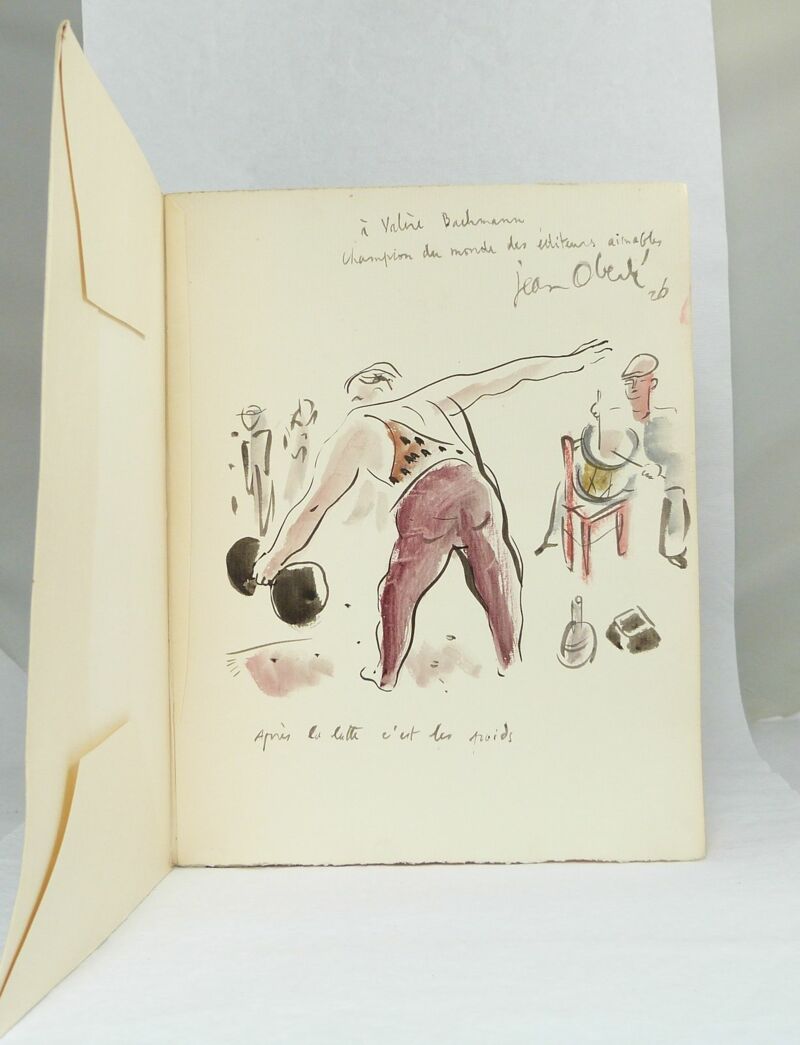 à Valère Bachmann
champion du monde des éditeurs aimables
jean Oberlé
26
Après la lutte c'est les poids